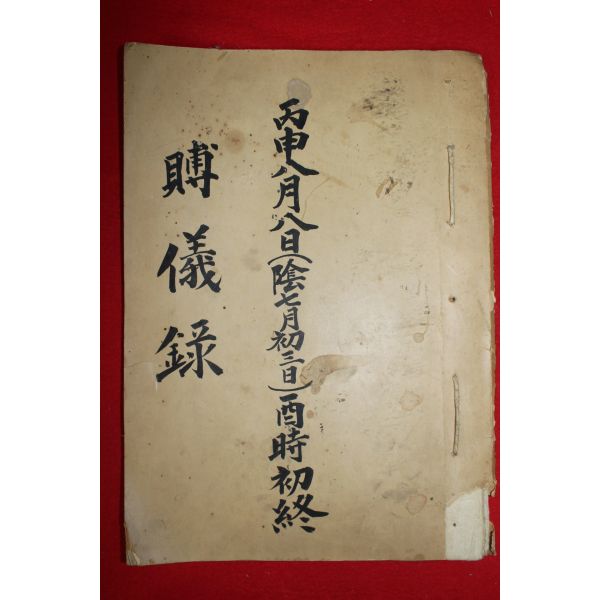 丙申八月八日(陰七月初三日)酉時初終
賻儀錄